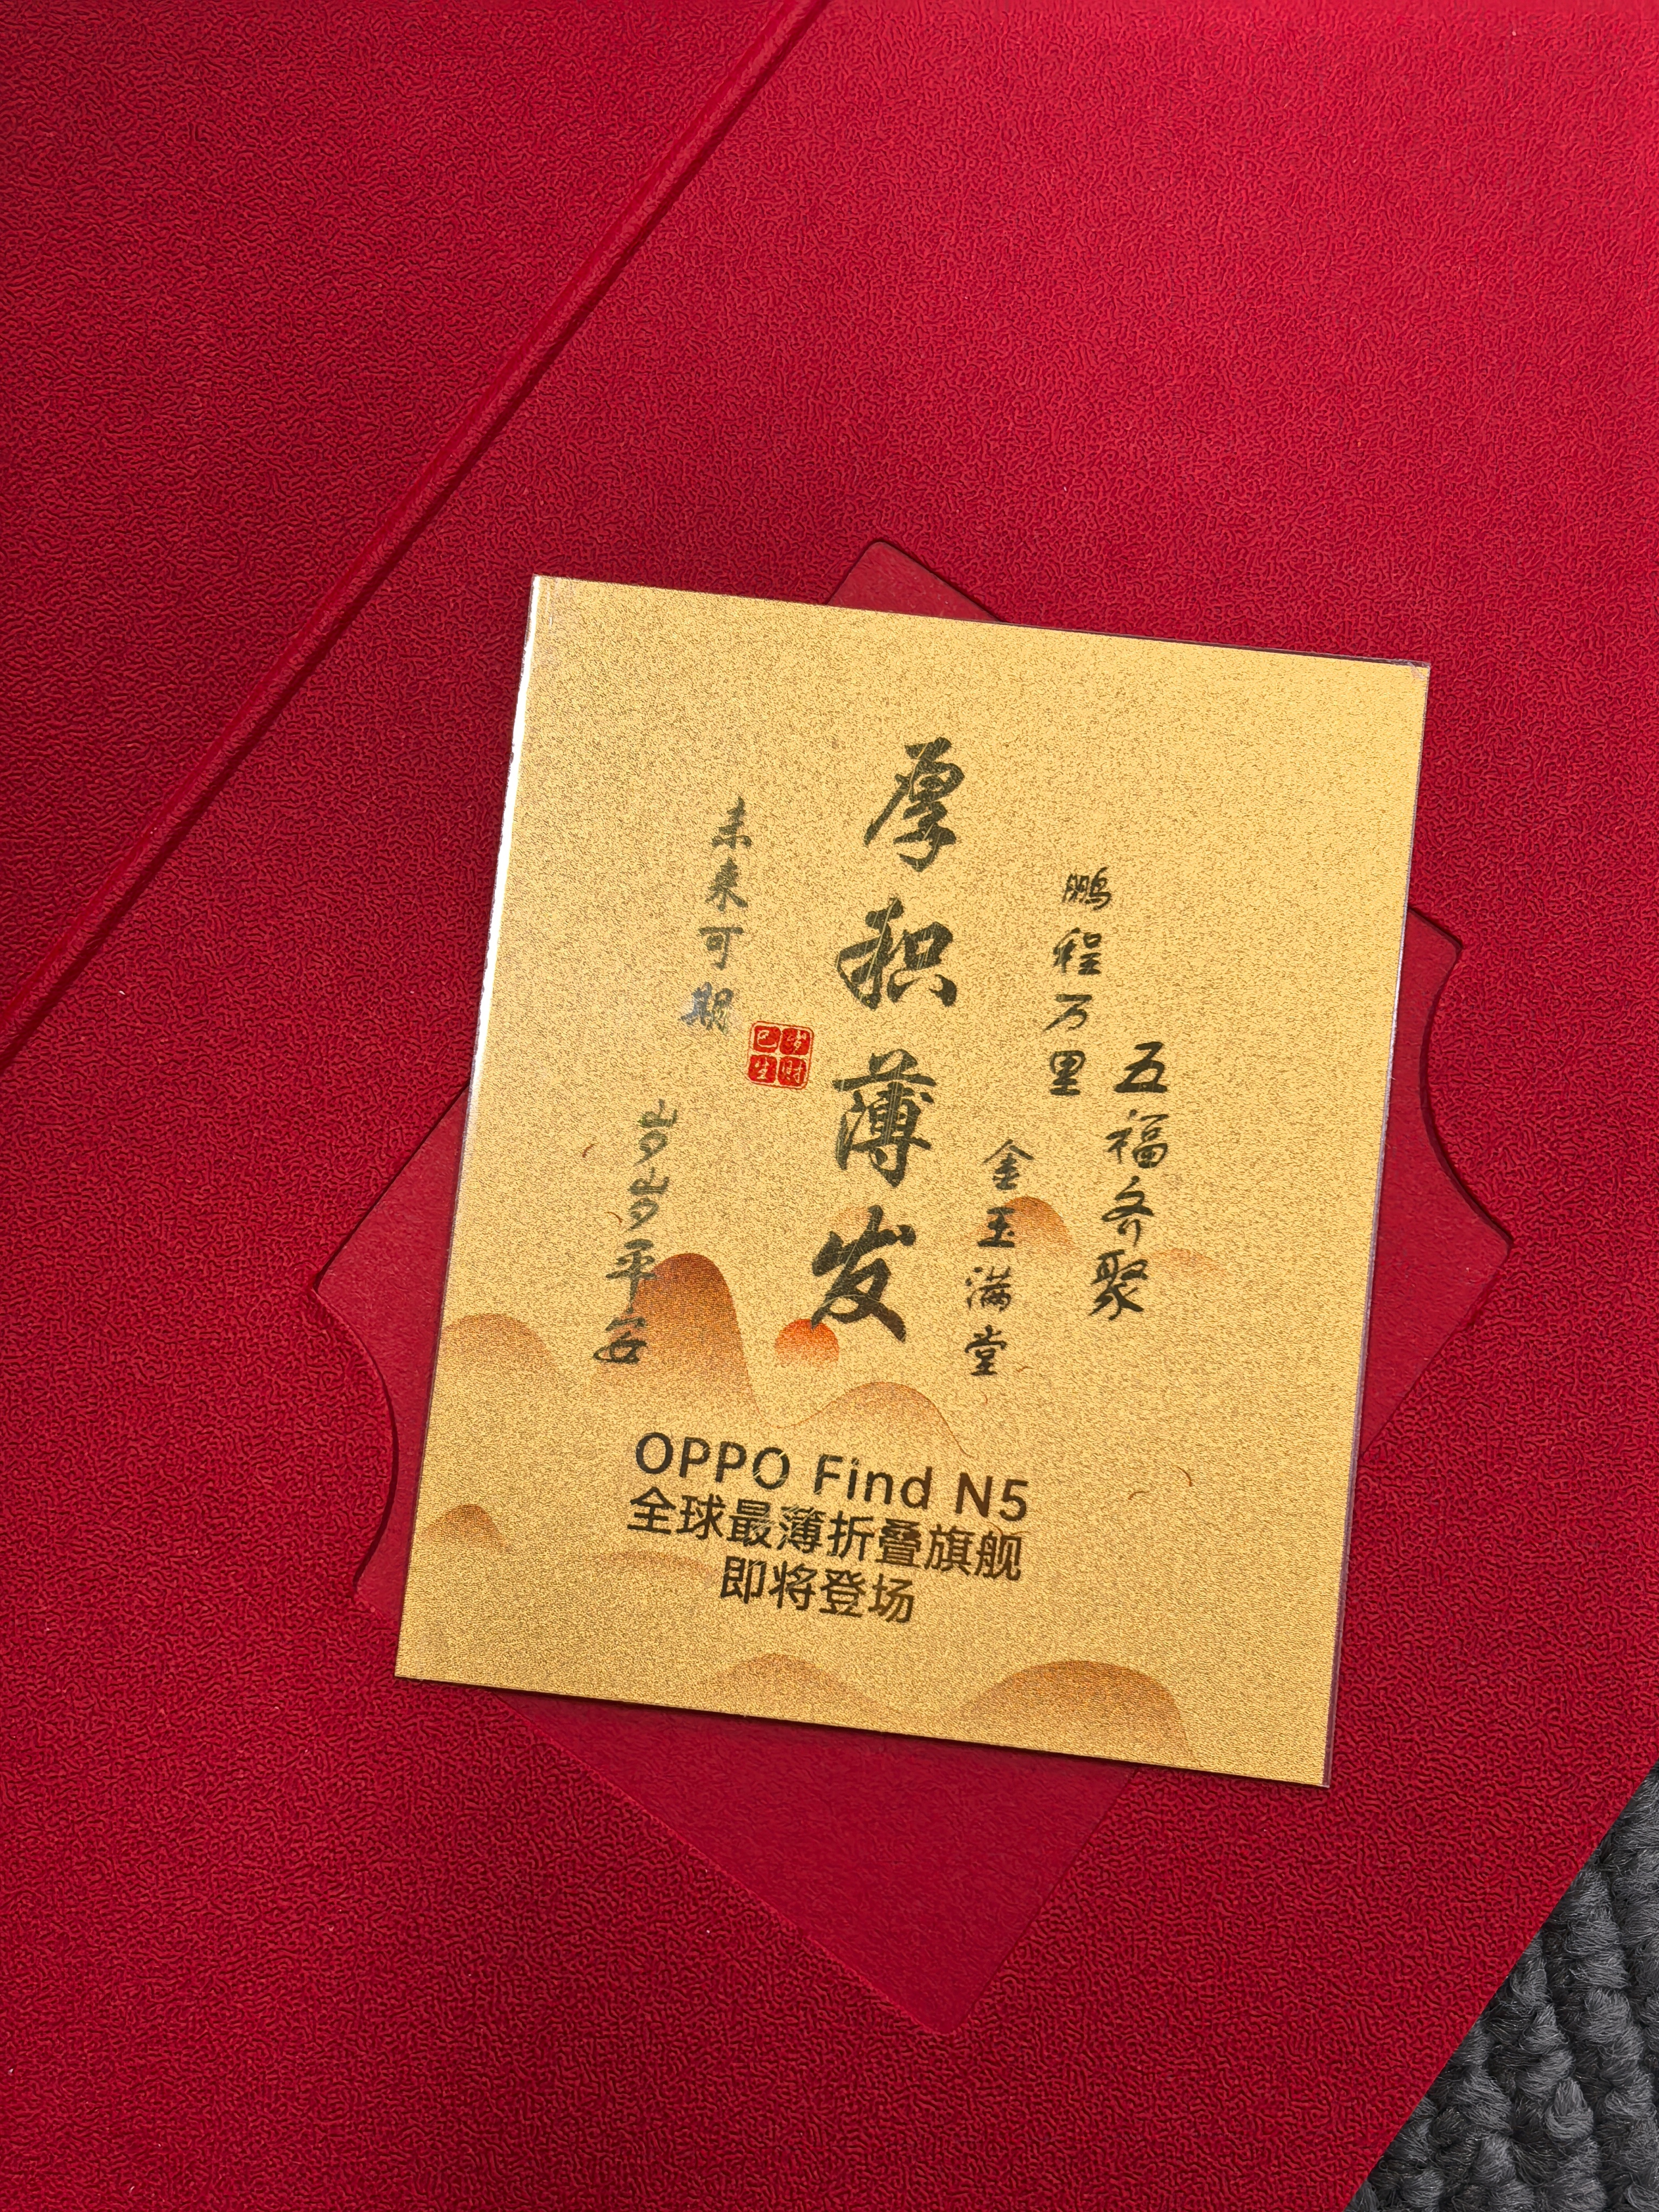 五福齐聚
鹏程万里
金玉满堂
厚积薄发
巳岁
生财
未来可期
岁岁平安
OPPO Find N5
全球最薄折叠旗舰
即将登场